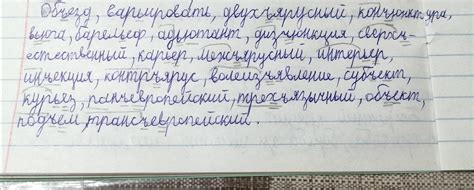 Объезд, варьировать, двухъярусный, конъюнктура,
вьюга, барельеф, адъютант, дизъюнкция, сверхъ-
естественный, карьер, межъярусный, интерьер,
инъекция, контръярус, волеизъявление, субъект,
курьез, панъевропейский, трехъязычный, объект,
подъем, трансъевропейский.